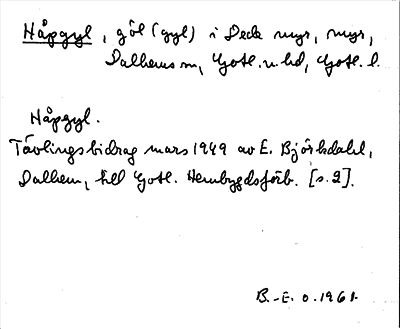 Håpgyl, göl (gyl) i Deck myr, myr,
Dalhems sn, Gotl. n. hd, Gotl. l.
Håpgyl.
Tävlingsbidrag mars 1949 av E. Björkdahl,
Dalhem, till Gotl. Hembygdsförb. [s. 2].
B.-E. O. 1961.